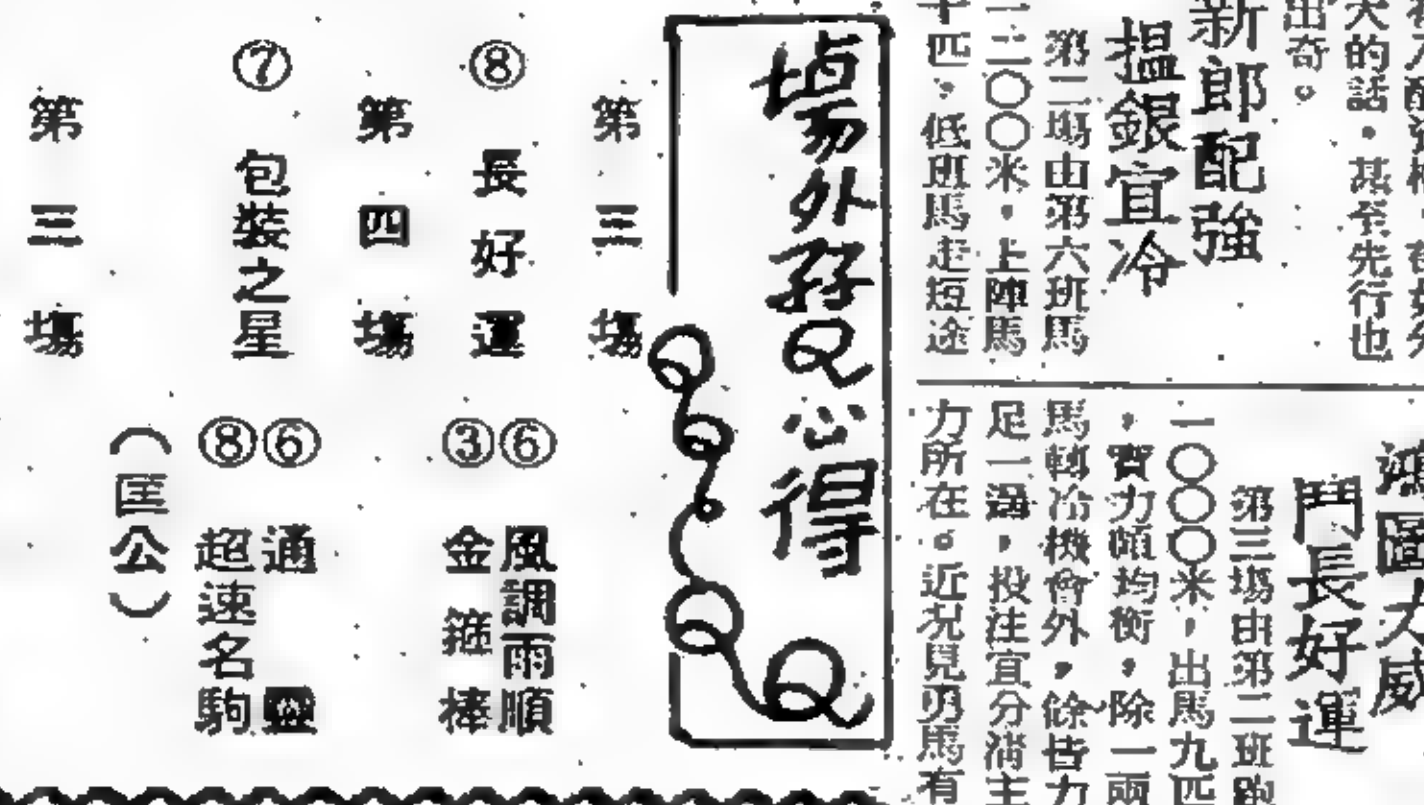 大的話。甚至先行也
出奇。
新郎配強
搵銀宜冷
第二場由第六班馬
一二〇〇米。上陣馬
十匹，低班馬走短途
鬥長好運
第三場由第二班跑
一〇〇〇米，出馬九匹
，實力頗均衡，除一兩
馬轉冷機會外，餘皆力
足一過，投注宜分清主
力所在。近況見勇馬有
場外孖Q心得
第三場
⑧長好運
⑥風調雨順
③金箍棒
第四場
⑦包裝之星
⑥通靈
⑧超速名駒
（匡公）
第三場